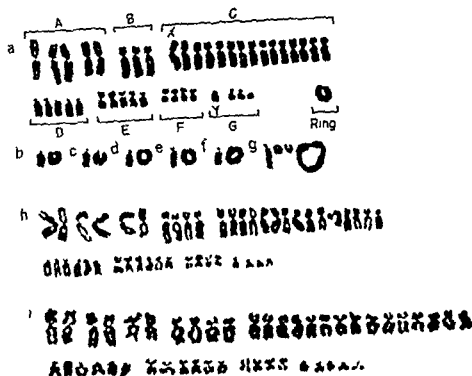 A B C
a X
Y
D E F G Ring
b c d e f g
h
i